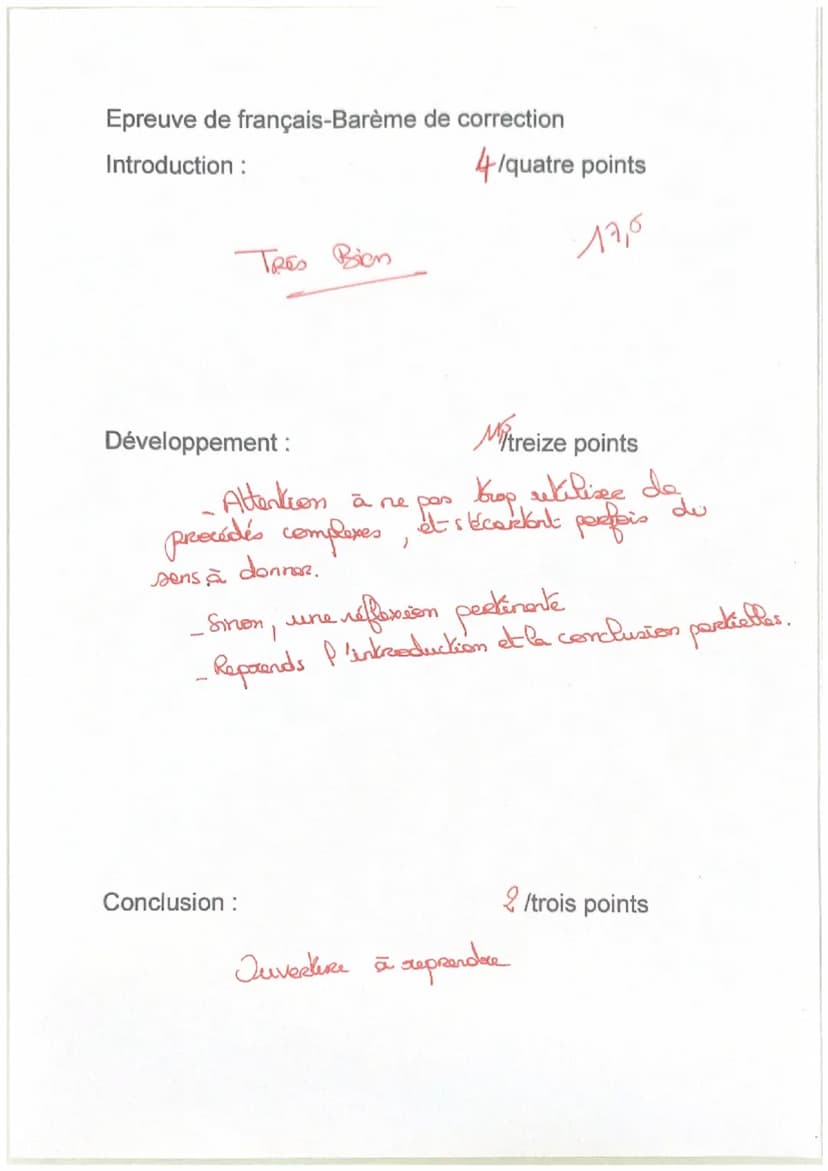 Epreuve de français-Barème de correction
Introduction : 4/quatre points
17,5
TRES Bien
Développement : /treize points
- Attention à ne pas trop utiliser de
procédés complexes, et s'écartant parfois du
sens à donner.
- Sinon, une réflexion pertinente
- Reprends l'introduction et la conclusion partielles.
Conclusion : 2 /trois points
Ouverture à reprendre